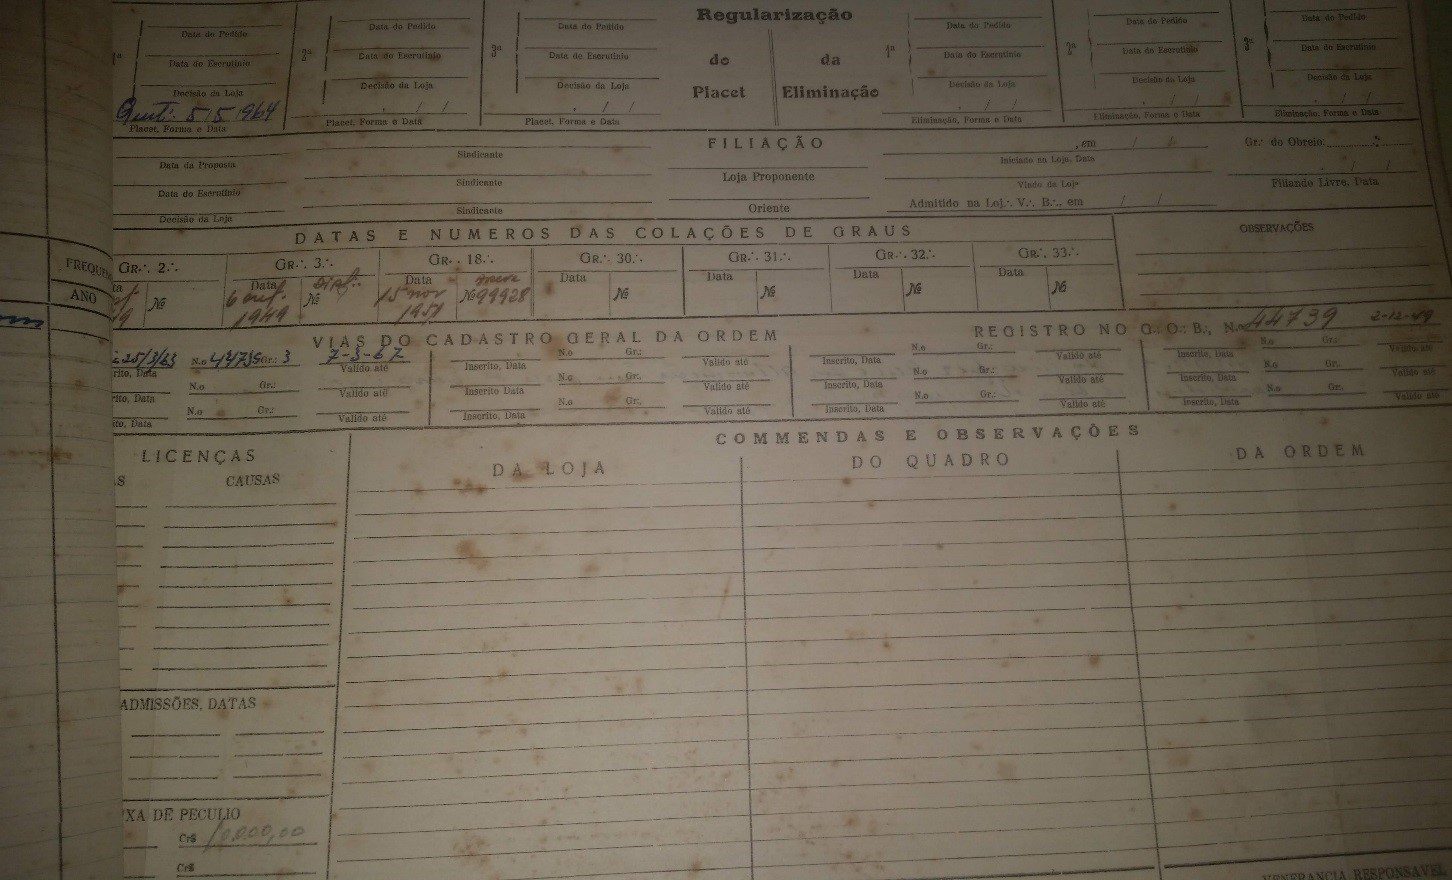 Regularização
do da
Placet Eliminação
1ª 2ª 3ª 1ª 2ª 3ª
Data do Pedido Data do Pedido Data do Pedido Data do Pedido Data do Pedido Data do Pedido
Data do Escrutinio Data do Escrutinio Data do Escrutinio Data do Escrutinio Data do Escrutinio Data do Escrutinio
Decisão da Loja Decisão da Loja Decisão da Loja Decisão da Loja Decisão da Loja Decisão da Loja
5 5 1964
Placet, Forma e Data Placet, Forma e Data Placet, Forma e Data Eliminação, Forma e Data Eliminação, Forma e Data Eliminação, Forma e Data
FILIAÇÃO
Data da Proposta Sindicante Loja Proponente , em / / Iniciado na Loja, Data Gr∴ do Obreiro
Data do Escrutinio Sindicante Vindo da Loja Filiando Livre, Data
Decisão da Loja Sindicante Oriente Admitido na Loj∴ V∴ B∴, em / /
DATAS E NUMEROS DAS COLAÇÕES DE GRAUS OBSERVAÇÕES
GR∴ 2∴ GR∴ 3∴ GR∴ 18∴ GR∴ 30∴ GR∴ 31∴ GR∴ 32∴ GR∴ 33∴
Data Data Data Data Data Data
Nº Nº 15 nov Nº 99928 Nº Nº Nº Nº
1949 1951
FREQUEN
ANO
VIAS DO CADASTRO GERAL DA ORDEM REGISTRO NO G∴ O∴ B∴, N.o 44739 2-12-49
25/3/63 N.o 44739 Gr∴: 3 7-3-67 N.o Gr∴: N.o Gr∴: N.o Gr∴:
rito, Data Valido até Inscrito, Data Valido até Inscrito, Data Valido até Inscrito, Data Valido até
N.o Gr∴: N.o Gr∴: N.o Gr∴: N.o Gr∴:
rito, Data Valido até Inscrito, Data Valido até Inscrito, Data Valido até Inscrito, Data Valido até
N.o Gr∴: N.o Gr∴: N.o Gr∴: N.o Gr∴:
ito, Data Valido até Inscrito, Data Valido até Inscrito, Data Valido até Inscrito, Data
COMMENDAS E OBSERVAÇÕES
LICENÇAS DA LOJA DO QUADRO DA ORDEM
AS CAUSAS
ADMISSÕES, DATAS
XA DE PECULIO
Cr$ 10.000,00
Cr$
VENERANCIA RESPONSAVEL